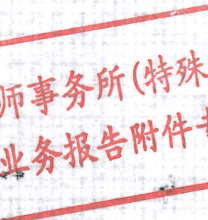 师事务所(特殊
业务报告附件